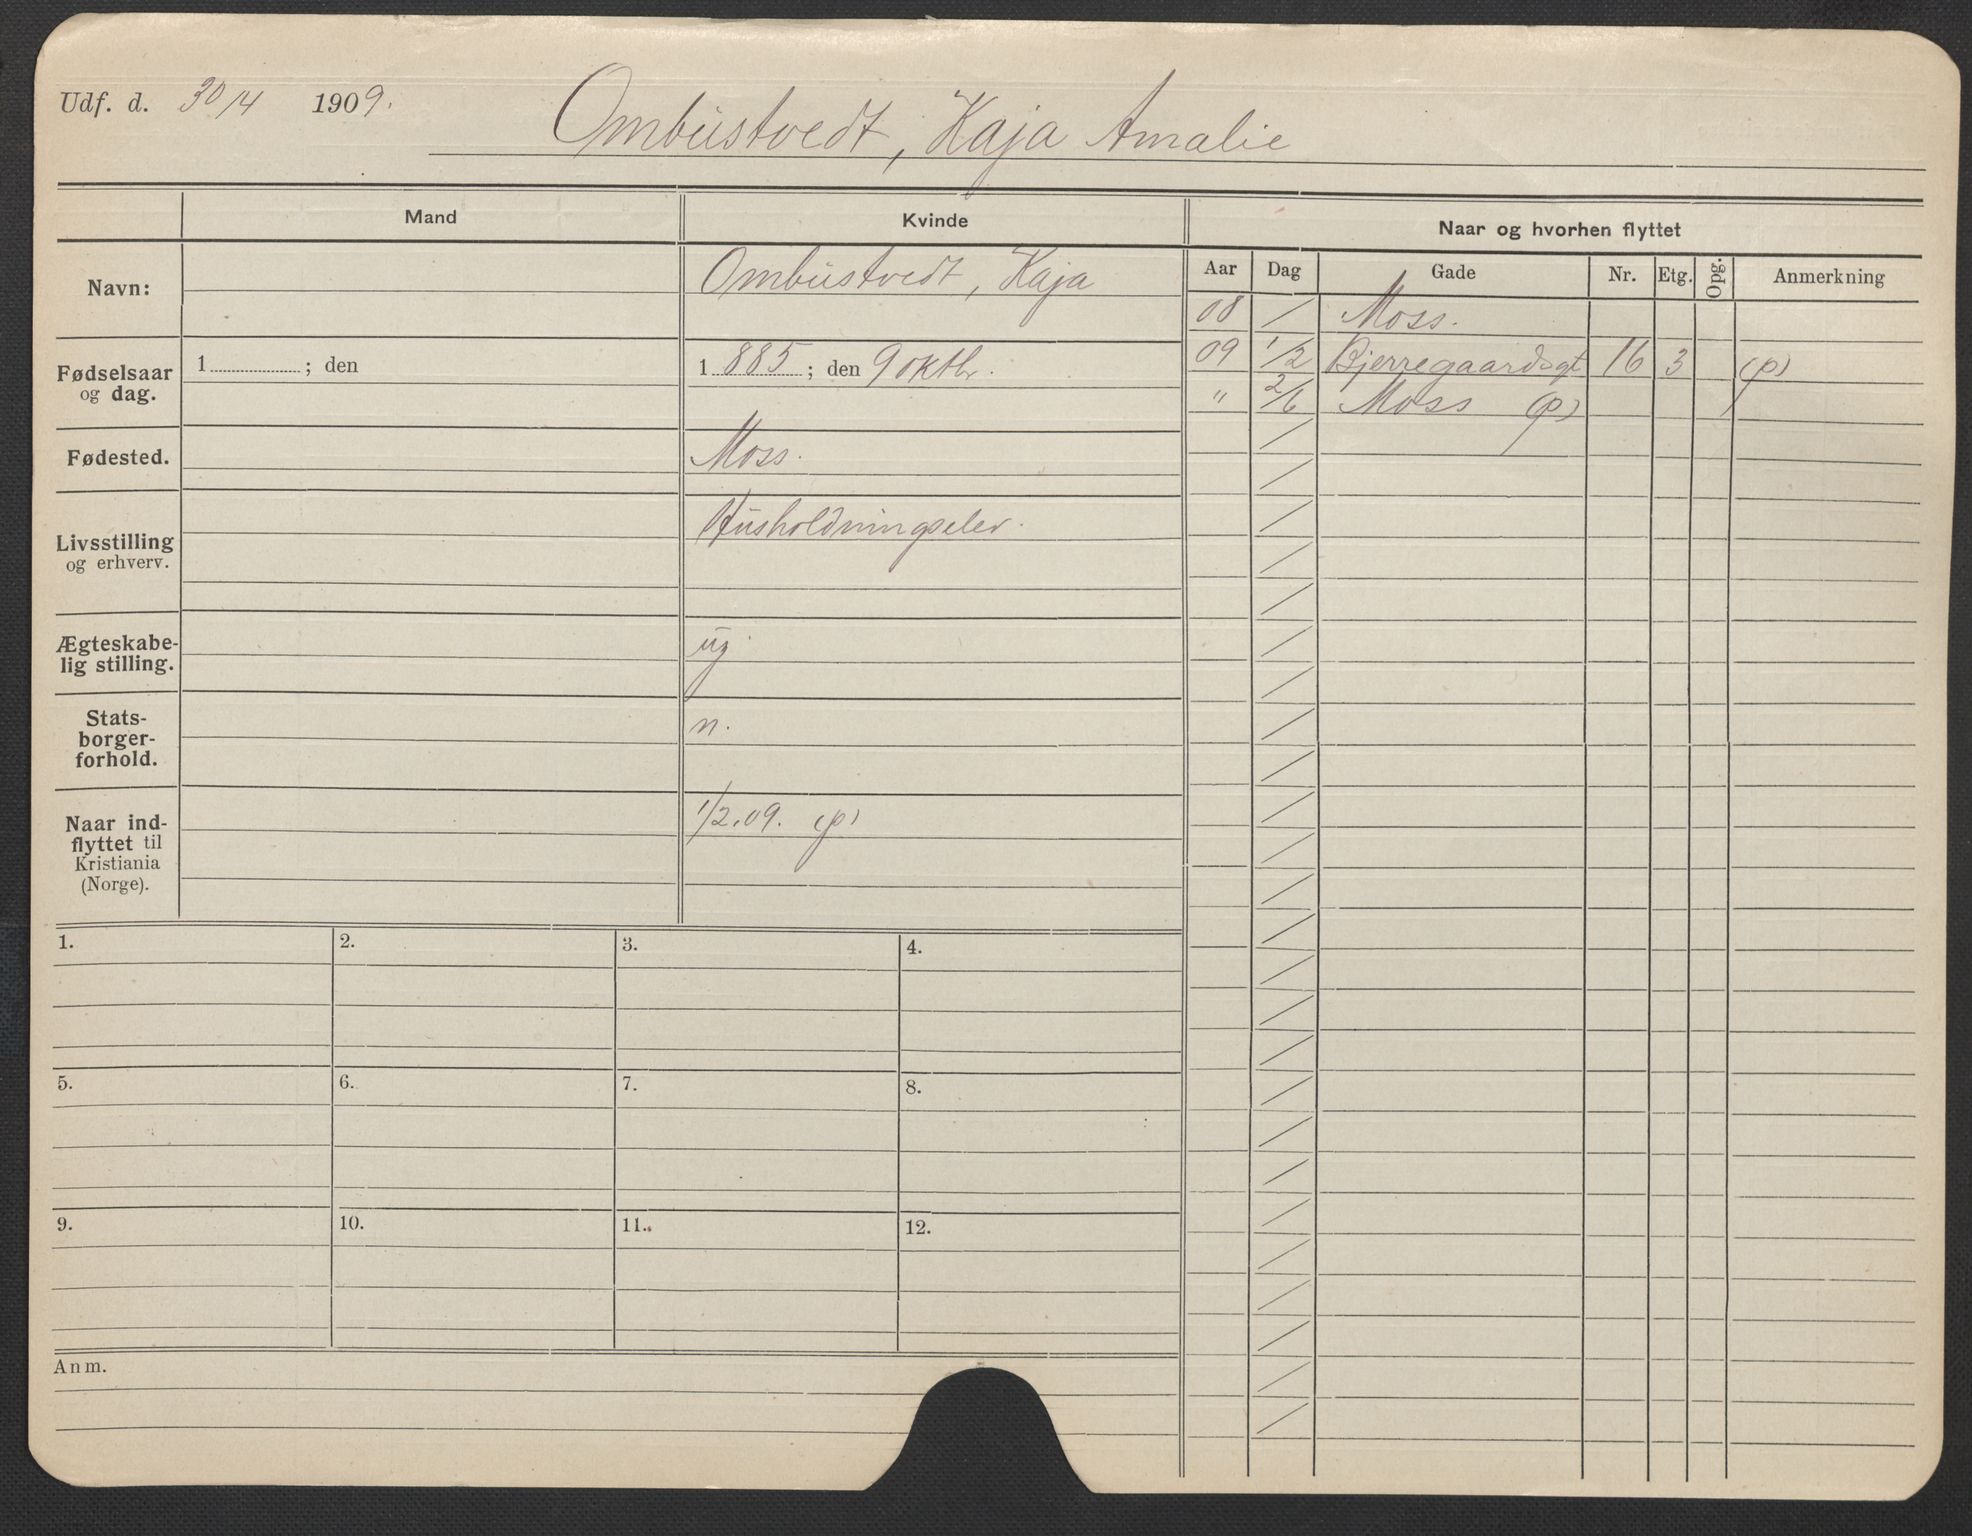 Udf. d. 30/4 1909.
Ombustvedt, Kaja Amalie
Mand
Kvinde
Naar og hvorhen flyttet
Aar Dag Gade Nr. Etg. Opg. Anmerkning
Navn:
Ombustvedt, Kaja
08 / Moss.
09 1/2 Bjerregaardsgt 16 3 (p)
" 2/6 Moss (p)
Fødselsaar
og dag.
1 ; den
1 885 ; den 9 oktbr.
Fødested.
Moss.
Livsstilling
og erhverv.
Husholdningselev.
Ægteskabe-
lig stilling.
ug.
Stats-
borger-
forhold.
n.
Naar ind-
flyttet til
Kristiania
(Norge).
1/2.09. (p)
1. 2. 3. 4.
5. 6. 7. 8.
9. 10. 11. 12.
Anm.